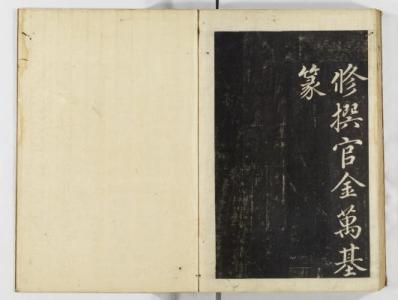 修撰官金萬基
篆